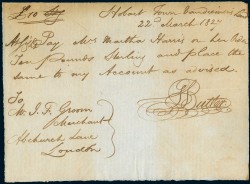 £10 Stg
Hobart Town Van diemens Land
22 March 182
Pay Mrs Martha Harris or her Order
Ten Pounds Sterling and place the
same to my Account as advised
To
Mr. J. F. Groom
Merchant
Abchurch Lane
London
Butler